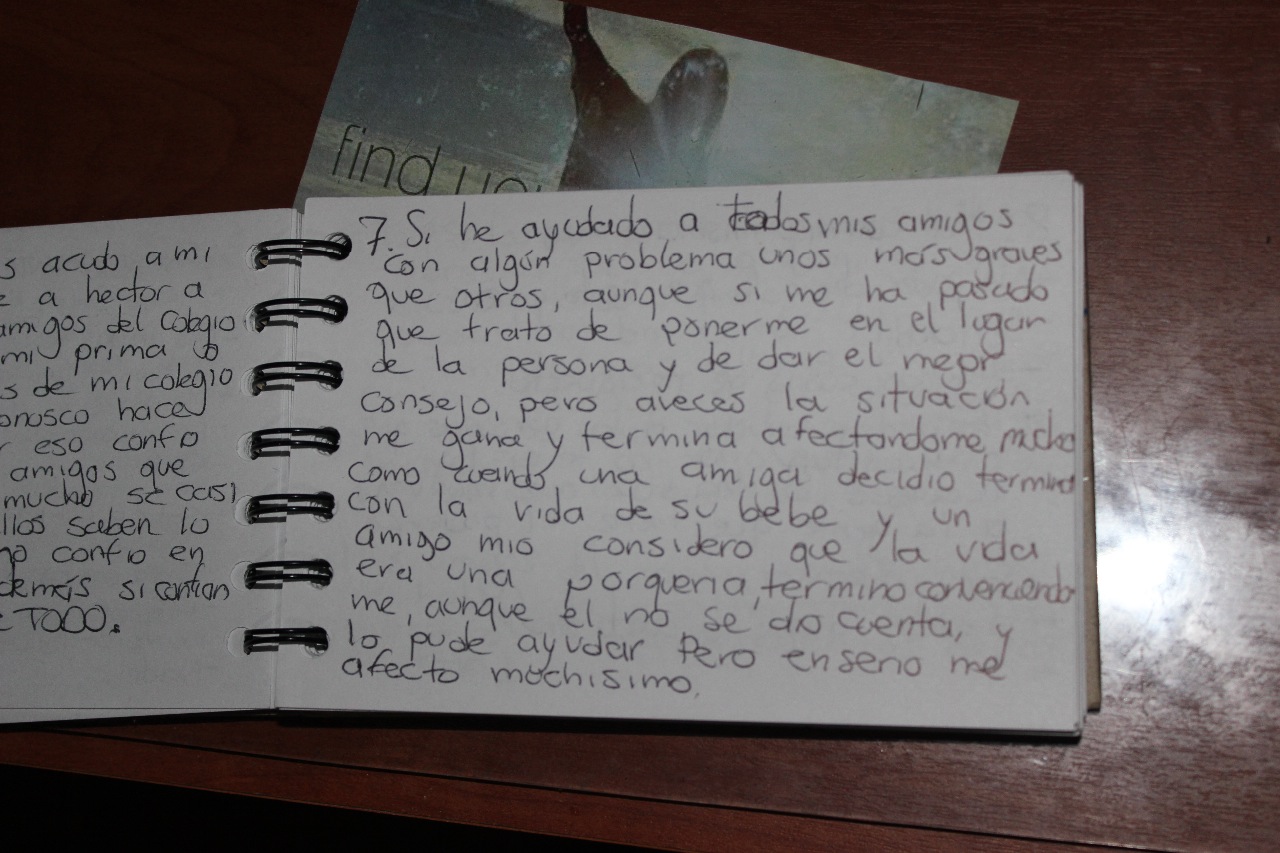 find
s acudo a mi
e a hector a
amigos del colegio
mi prima o
s de mi colegio
onosco hace
r eso confio
amigos que
mucho se casi
llos saben lo
go confio en
demás si confian
TODO.
7. Si he ayudado a todos mis amigos
con algún problema unos más graves
que otros, aunque si me ha pasado
que trato de ponerme en el lugar
de la persona y de dar el mejor
consejo, pero aveces la situación
me gana y termina afectandome, mucho
como cuando una amiga decidio termina
con la vida de su bebe y un
amigo mio considero que la vida
era una porqueria, termino convenciendo
me, aunque el no se dio cuenta, y
lo pude ayudar Pero enseno me
afecto muchisimo.